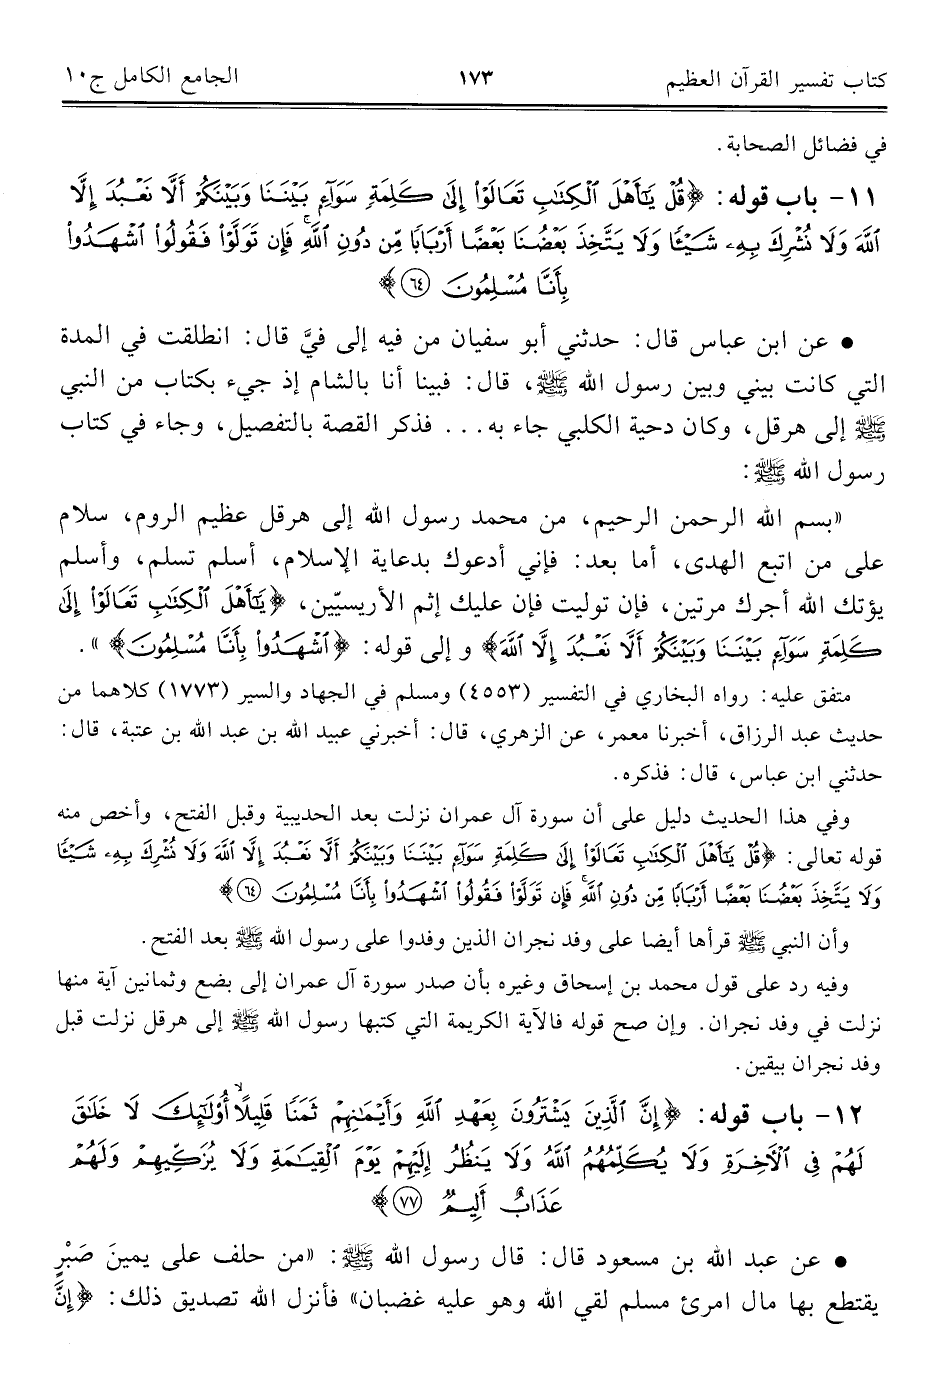 كتاب تفسير القرآن العظيم ١٧٣ الجامع الكامل ج١٠
في فضائل الصحابة.
١١- باب قوله: ﴿قُلْ يَٰٓأَهْلَ ٱلْكِتَٰبِ تَعَالَوْا۟ إِلَىٰ كَلِمَةٍ سَوَآءٍۭ بَيْنَنَا وَبَيْنَكُمْ أَلَّا نَعْبُدَ إِلَّا
ٱللَّهَ وَلَا نُشْرِكَ بِهِۦ شَيْـًٔا وَلَا يَتَّخِذَ بَعْضُنَا بَعْضًا أَرْبَابًا مِّن دُونِ ٱللَّهِ ۚ فَإِن تَوَلَّوْا۟ فَقُولُوا۟ ٱشْهَدُوا۟
بِأَنَّا مُسْلِمُونَ ٦٤﴾
• عن ابن عباس قال: حدثني أبو سفيان من فيه إلى فيَّ قال: انطلقت في المدة
التي كانت بيني وبين رسول الله ﷺ، قال: فبينا أنا بالشام إذ جيء بكتاب من النبي
ﷺ إلى هرقل، وكان دحية الكلبي جاء به... فذكر القصة بالتفصيل، وجاء في كتاب
رسول الله ﷺ:
«بسم الله الرحمن الرحيم، من محمد رسول الله إلى هرقل عظيم الروم، سلام
على من اتبع الهدى، أما بعد: فإني أدعوك بدعاية الإسلام، أسلم تسلم، وأسلم
يؤتك الله أجرك مرتين، فإن توليت فإن عليك إثم الأريسيّين، ﴿يَٰٓأَهْلَ ٱلْكِتَٰبِ تَعَالَوْا۟ إِلَىٰ
كَلِمَةٍ سَوَآءٍۭ بَيْنَنَا وَبَيْنَكُمْ أَلَّا نَعْبُدَ إِلَّا ٱللَّهَ﴾ و إلى قوله: ﴿ٱشْهَدُوا۟ بِأَنَّا مُسْلِمُونَ﴾ ».
متفق عليه: رواه البخاري في التفسير (٤٥٥٣) ومسلم في الجهاد والسير (١٧٧٣) كلاهما من
حديث عبد الرزاق، أخبرنا معمر، عن الزهري، قال: أخبرني عبيد الله بن عبد الله بن عتبة، قال:
حدثني ابن عباس، قال: فذكره.
وفي هذا الحديث دليل على أن سورة آل عمران نزلت بعد الحديبية وقبل الفتح، وأخص منه
قوله تعالى: ﴿قُلْ يَٰٓأَهْلَ ٱلْكِتَٰبِ تَعَالَوْا۟ إِلَىٰ كَلِمَةٍ سَوَآءٍۭ بَيْنَنَا وَبَيْنَكُمْ أَلَّا نَعْبُدَ إِلَّا ٱللَّهَ وَلَا نُشْرِكَ بِهِۦ شَيْـًٔا
وَلَا يَتَّخِذَ بَعْضُنَا بَعْضًا أَرْبَابًا مِّن دُونِ ٱللَّهِ ۚ فَإِن تَوَلَّوْا۟ فَقُولُوا۟ ٱشْهَدُوا۟ بِأَنَّا مُسْلِمُونَ ٦٤﴾
وأن النبي ﷺ قرأها أيضا على وفد نجران الذين وفدوا على رسول الله ﷺ بعد الفتح.
وفيه رد على قول محمد بن إسحاق وغيره بأن صدر سورة آل عمران إلى بضع وثمانين آية منها
نزلت في وفد نجران. وإن صح قوله فالآية الكريمة التي كتبها رسول الله ﷺ إلى هرقل نزلت قبل
وفد نجران بيقين.
١٢- باب قوله: ﴿إِنَّ ٱلَّذِينَ يَشْتَرُونَ بِعَهْدِ ٱللَّهِ وَأَيْمَٰنِهِمْ ثَمَنًا قَلِيلًا أُو۟لَٰٓئِكَ لَا خَلَٰقَ
لَهُمْ فِى ٱلْـَٔاخِرَةِ وَلَا يُكَلِّمُهُمُ ٱللَّهُ وَلَا يَنظُرُ إِلَيْهِمْ يَوْمَ ٱلْقِيَٰمَةِ وَلَا يُزَكِّيهِمْ وَلَهُمْ
عَذَابٌ أَلِيمٌ ٧٧﴾
• عن عبد الله بن مسعود قال: قال رسول الله ﷺ: «من حلف على يمينَ صَبْرٍ
يقتطع بها مال امرئ مسلم لقي الله وهو عليه غضبان» فأنزل الله تصديق ذلك: ﴿إِنَّ